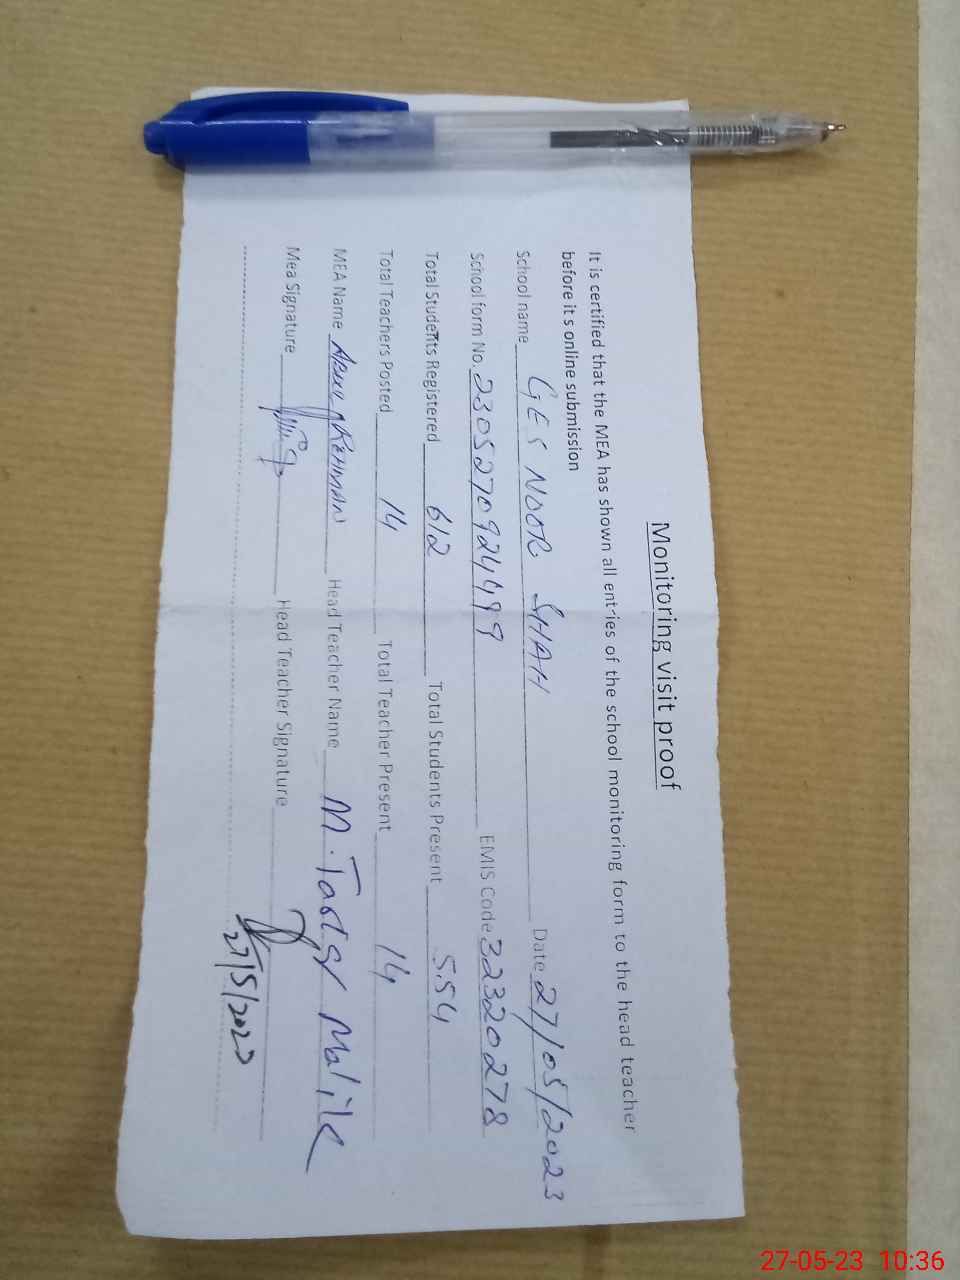 Monitoring visit proof
It is certified that the MEA has shown all entries of the school monitoring form to the head teacher
before it s online submission
School name GES NOOR SHAH Date 27/05/2023
School form No. 2305270924499 EMIS Code 32320278
Total Students Registered 612 Total Students Present 554
Total Teachers Posted 14 Total Teacher Present 14
MEA Name Rehman Head Teacher Name M. Malik
Mea Signature Head Teacher Signature
27/5/2023
27-05-23 10:36